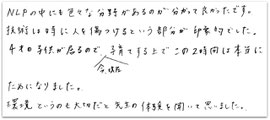 NLPの中にも色々な分野があるのが分かって良かったです。
技術は時に人を傷つけるという部分が印象的でした。
4才の子供が居るので、子育てする上でこの2時間は本当に
今現在
ためになりました。
環境というのも大切だと先生の体験を聞いて思いました。